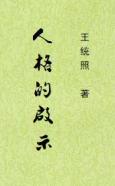 人格的啟示
王统照 著